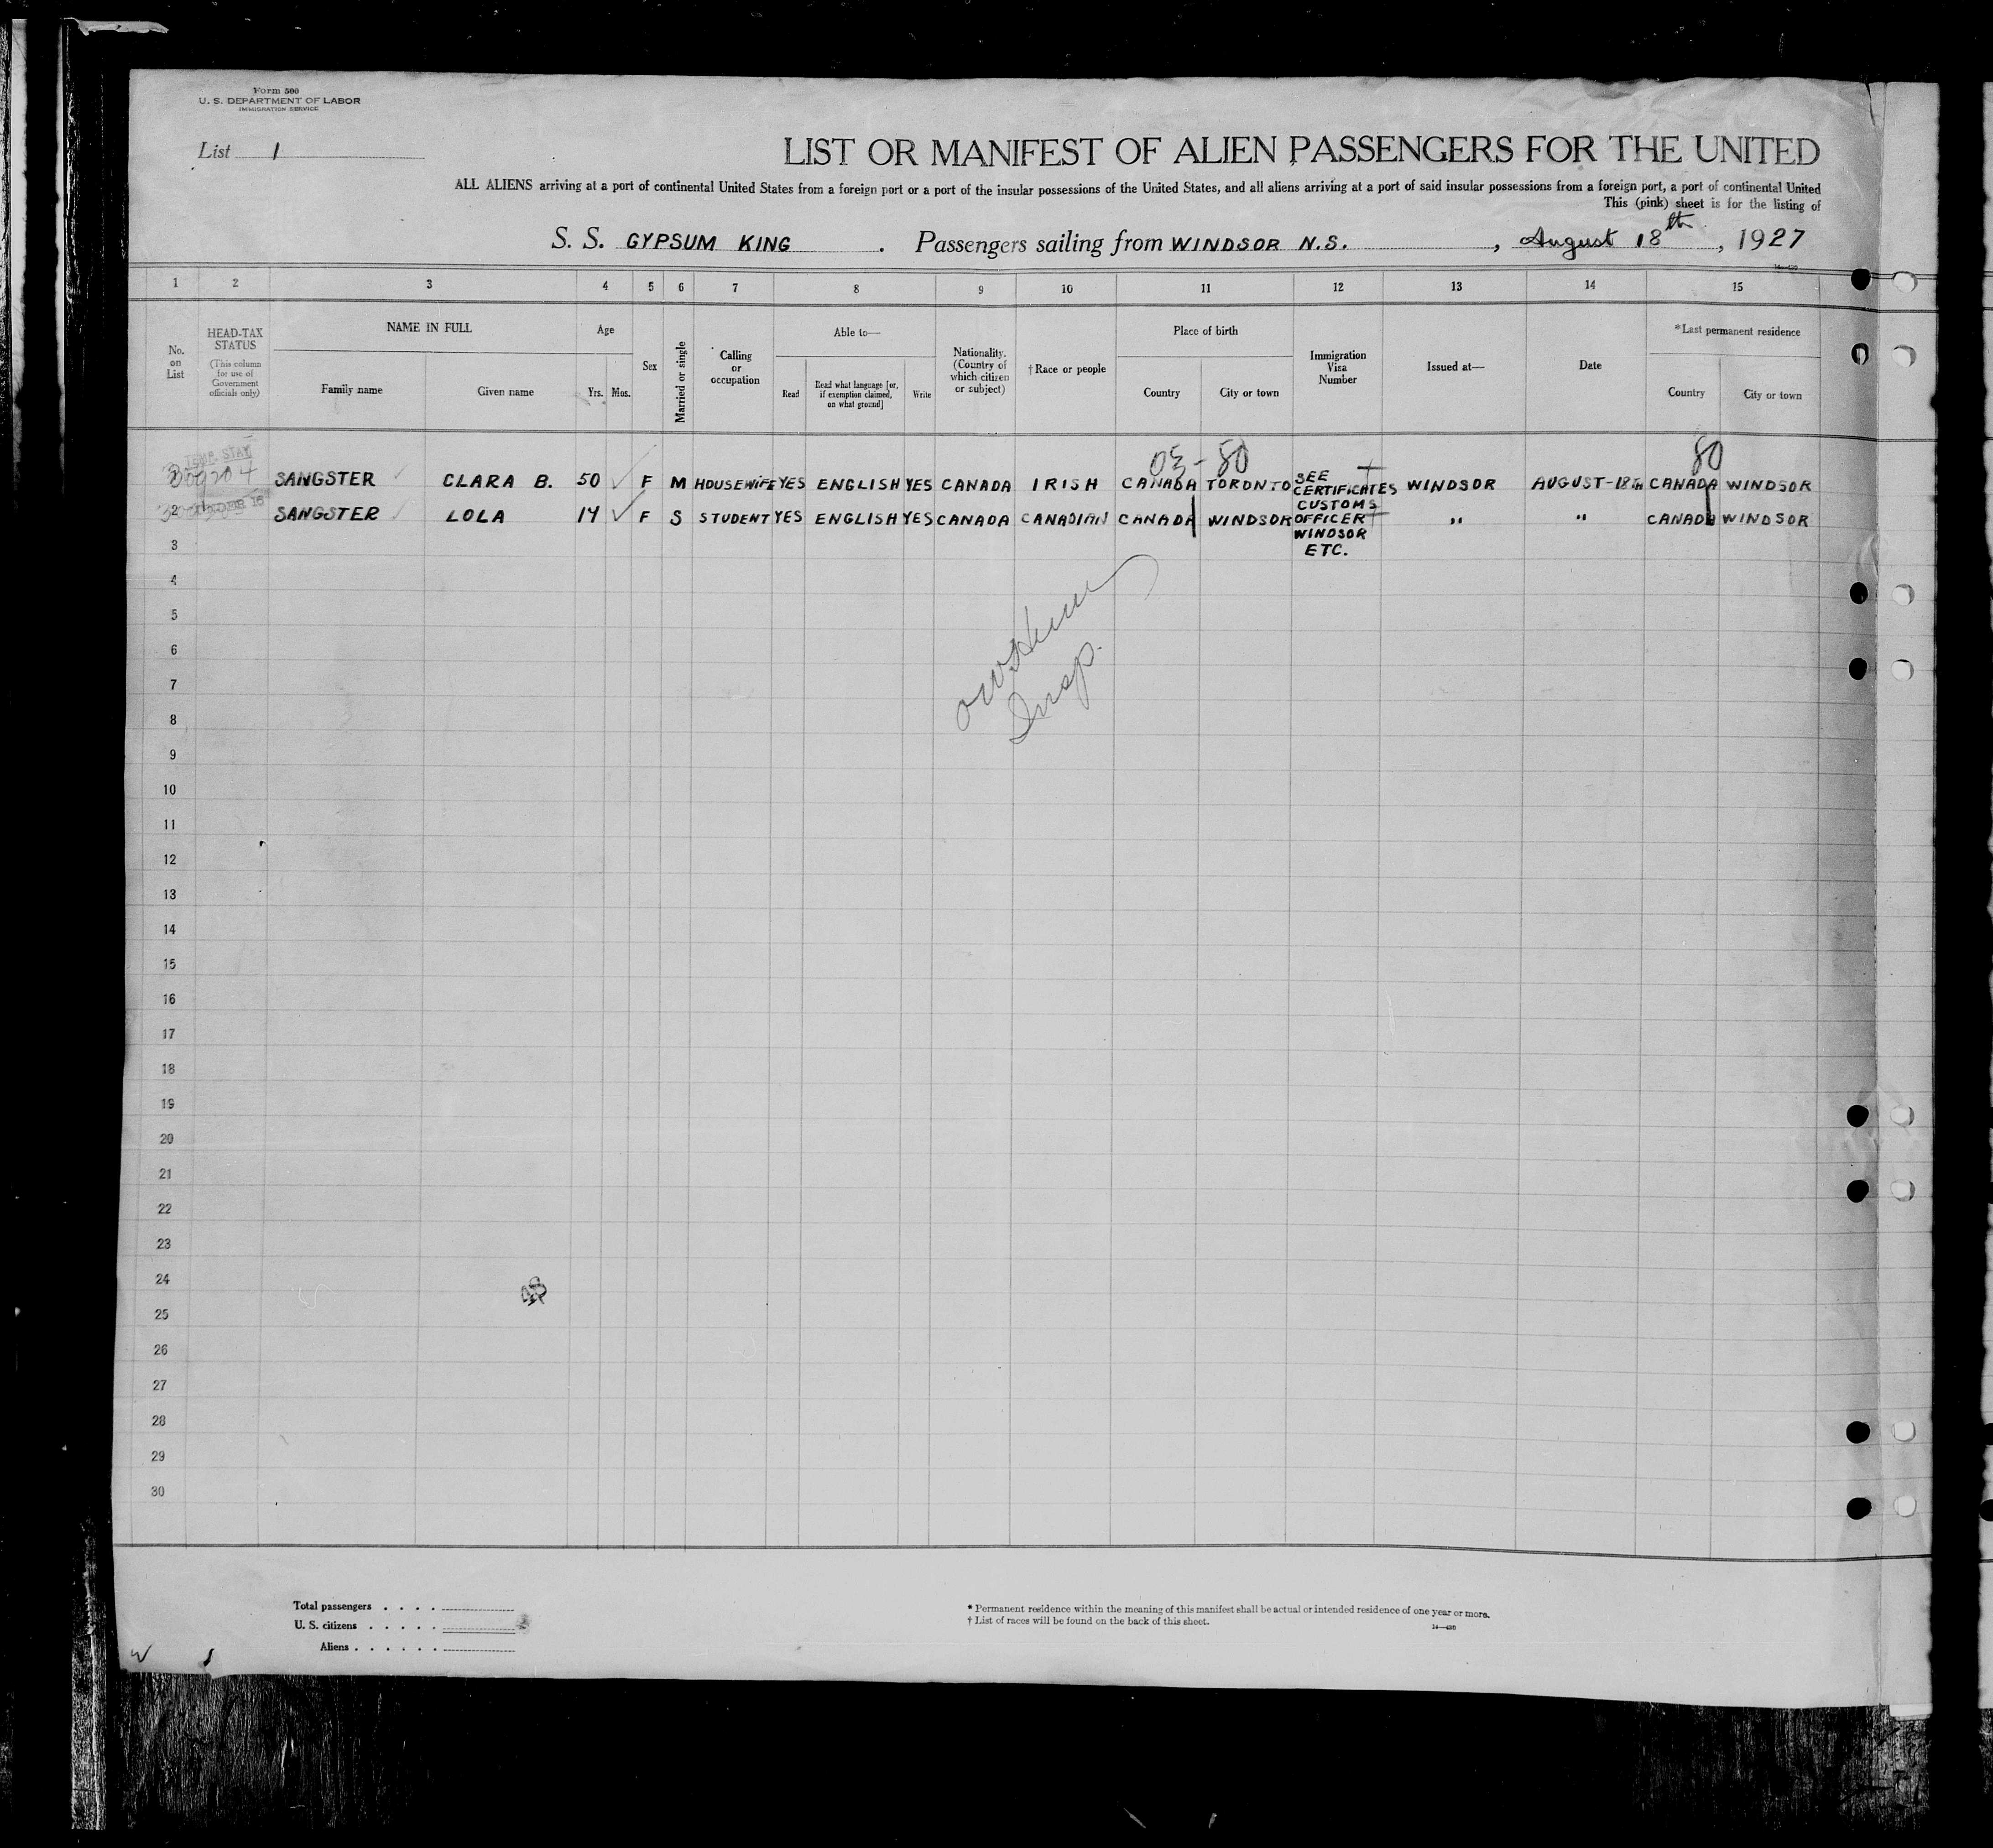 Form 500
U. S. DEPARTMENT OF LABOR
IMMIGRATION SERVICE
List 1
LIST OR MANIFEST OF ALIEN PASSENGERS FOR THE UNITED
ALL ALIENS arriving at a port of continental United States from a foreign port or a port of the insular possessions of the United States, and all aliens arriving at a port of said insular possessions from a foreign port, a port of continental United
This (pink) sheet is for the listing of
S. S. GYPSUM KING . Passengers sailing from WINDSOR N.S. , August 18th , 1927
1 2 3 4 5 6 7 8 9 10 11 12 13 14 15
No. on List
HEAD-TAX STATUS
(This column for use of Government officials only)
NAME IN FULL
Family name Given name
Age
Yrs. Mos.
Sex
Married or single
Calling or occupation
Able to—
Read
Read what language [or, if exemption claimed, on what ground]
Write
Nationality. (Country of which citizen or subject)
†Race or people
Place of birth
Country City or town
Immigration Visa Number
Issued at—
Date
*Last permanent residence
Country City or town
TEMP. STAY
03-80 80
SANGSTER CLARA B. 50 F M HOUSEWIFE YES ENGLISH YES CANADA IRISH CANADA TORONTO SEE CERTIFICATES WINDSOR AUGUST-18TH CANADA WINDSOR
UNDER 16
2 SANGSTER LOLA 14 F S STUDENT YES ENGLISH YES CANADA CANADIAN CANADA WINDSOR CUSTOMS OFFICER WINDSOR ETC. " " CANADA WINDSOR
3
4
5
6
7
8
9
10
11
12
13
14
15
16
17
18
19
20
21
22
23
24
25
26
27
28
29
30
Insp.
Total passengers . . . .
U. S. citizens . . . . .
Aliens . . . . . .
* Permanent residence within the meaning of this manifest shall be actual or intended residence of one year or more.
† List of races will be found on the back of this sheet.